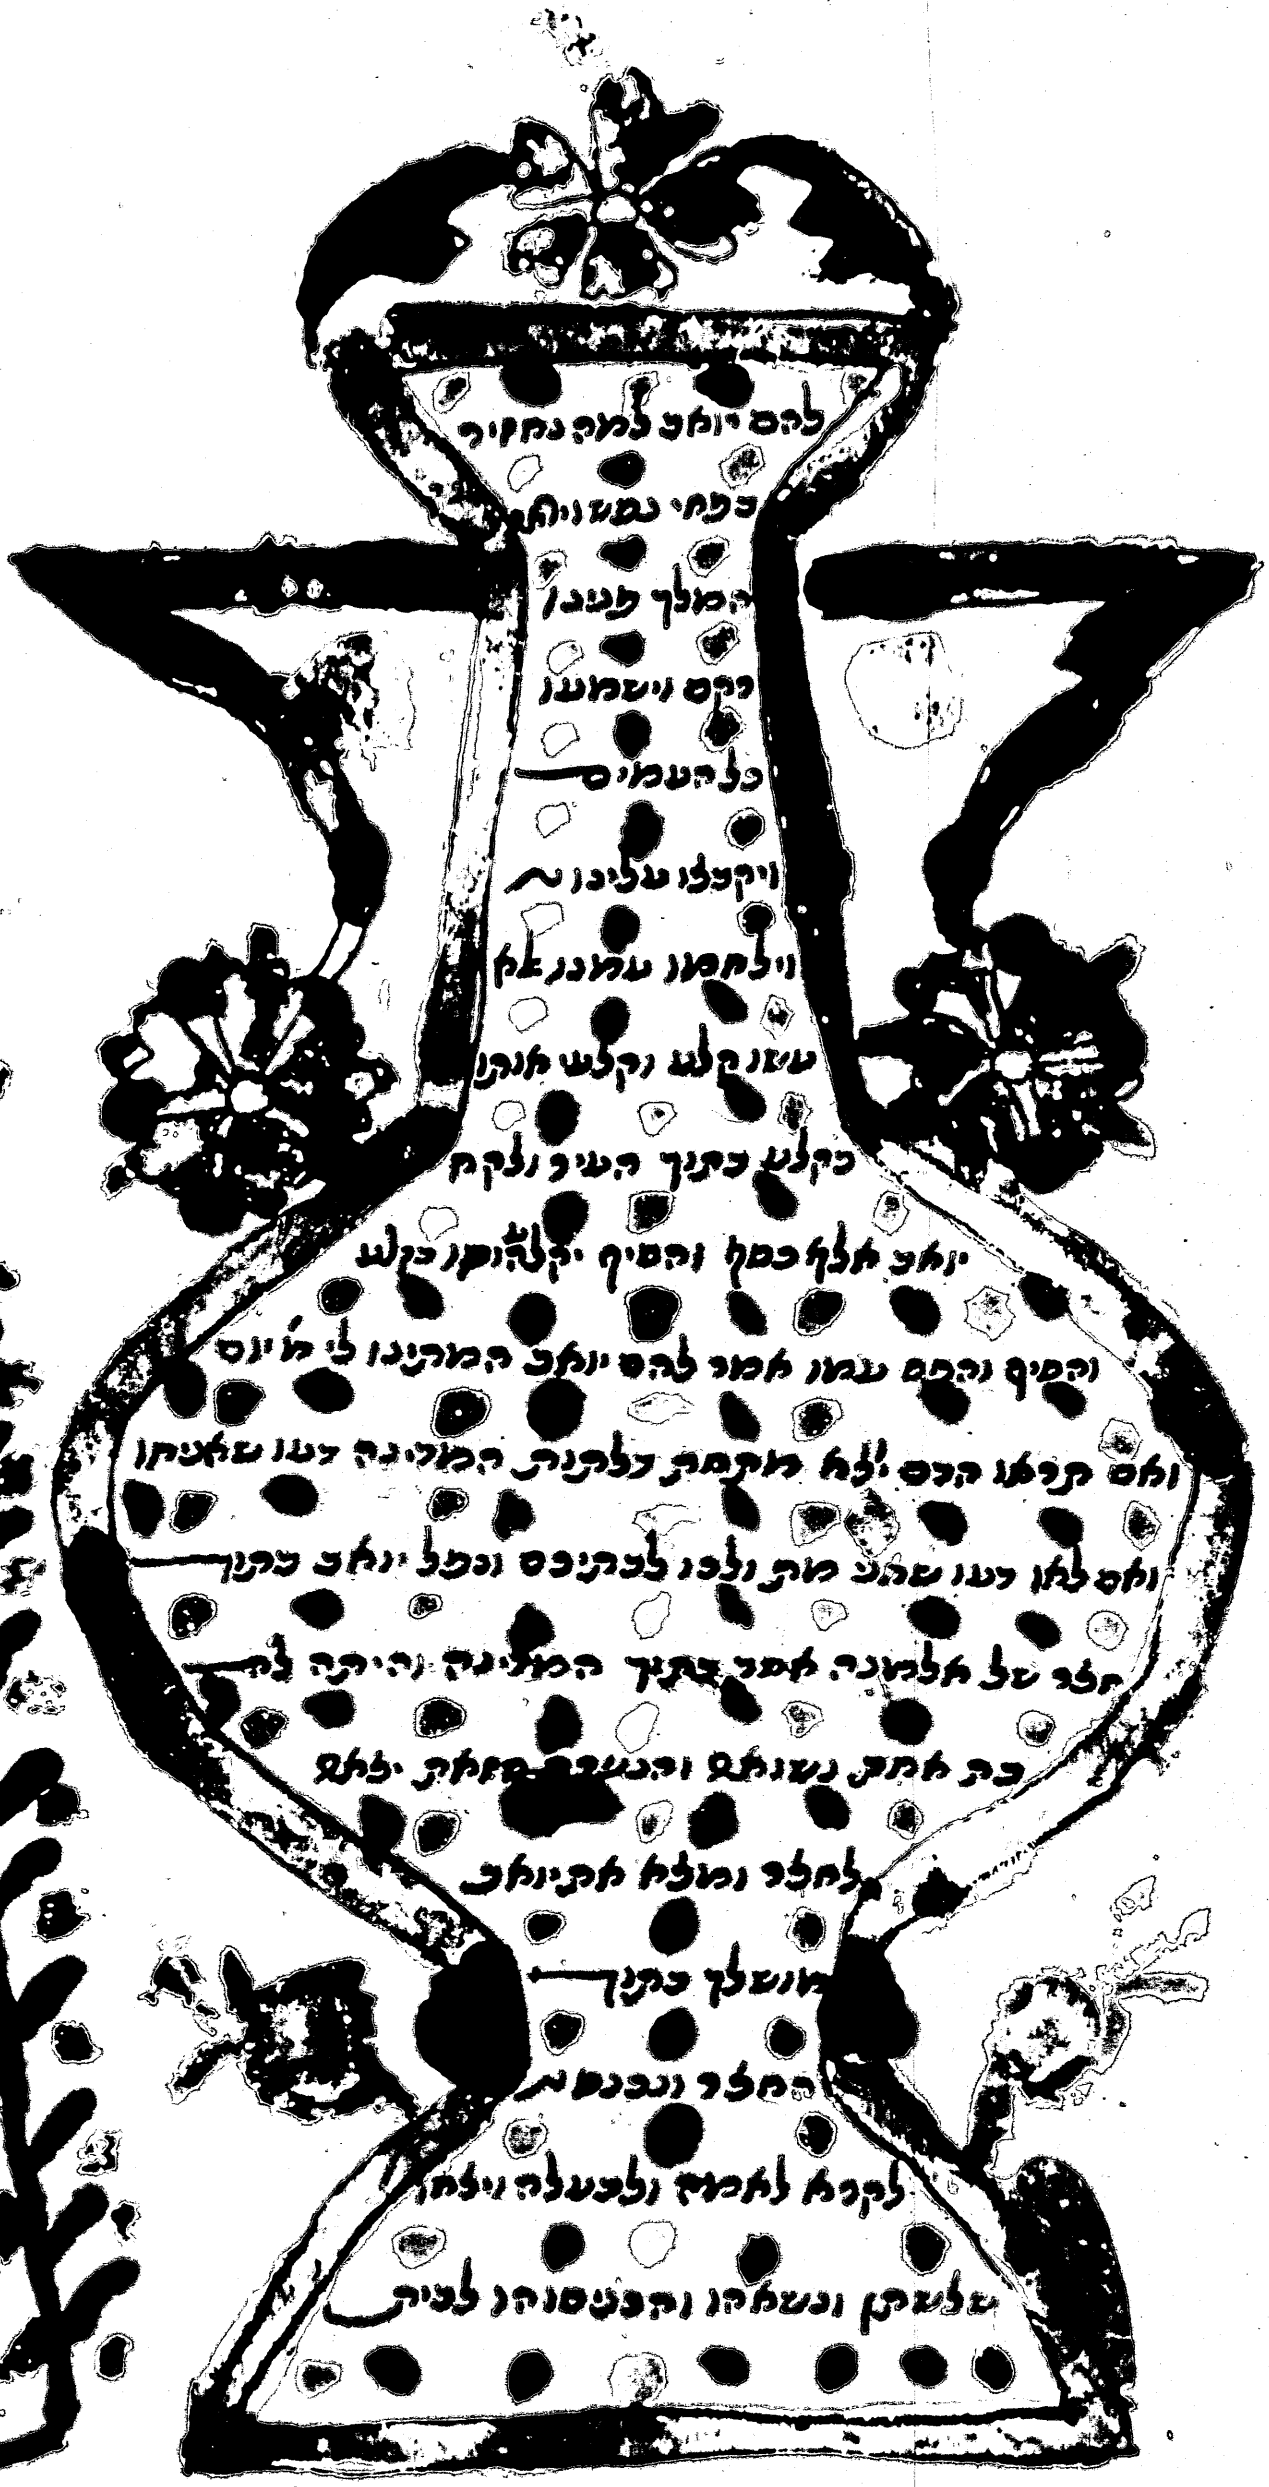 להם יואב למה נחזיר
בפחי נפש ויאמרו
המלך ממנו
רקם וישמעו
כל העמים
ויקבצו עלינו
וילחמו עמנו אלא
עשו קלע וקלעי אותי
בקלע בתוך העיר ולקח
יואב אלף כסף והסיף יקלעוהו בקלע
והסיף והכסף עמו אמר להם יואב המתינו לי מ׳ יום
ואם תראו הדם יוצא מתחת דלתות המדינה דעו שאני חי
ואם לאו דעו שאני מת ולכו לבתיכם ונפל יואב בתוך
חצר של אלמנה אחד בתוך המדינה והיתה לה
בת אחת נשואה והנערה הזאת יצאה
לחצר ומצא את יואב
מושלך בתוך
החצר ונכנסה
לקרא לאמה ולבעלה ויצאו
שלשתן ונשאהו והכניסוהו לבית